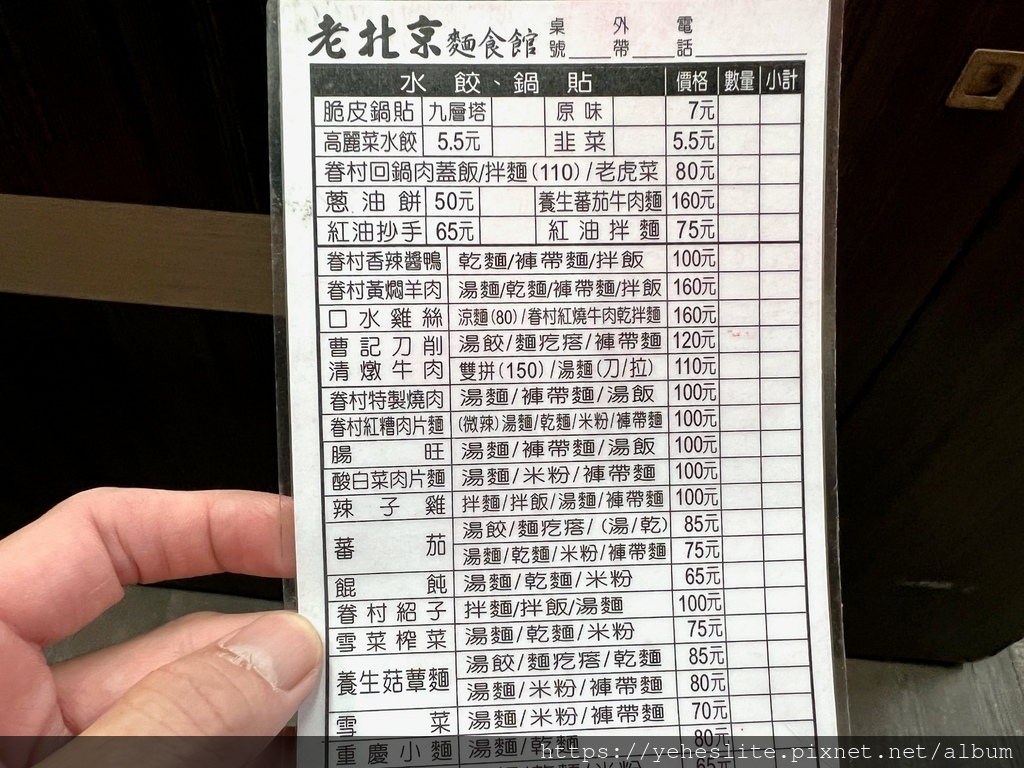 老北京麵食館 桌號 外帶 電話
水餃、鍋貼 價格 數量 小計
脆皮鍋貼 九層塔 原味 7元
高麗菜水餃 5.5元 韭菜 5.5元
眷村回鍋肉蓋飯/拌麵(110)/老虎菜 80元
蔥油餅 50元 養生蕃茄牛肉麵 160元
紅油抄手 65元 紅油拌麵 75元
眷村香辣醬鴨 乾麵/褲帶麵/拌飯 100元
眷村黃燜羊肉 湯麵/乾麵/褲帶麵/拌飯 160元
口水雞絲 涼麵(80)/眷村紅燒牛肉乾拌麵 160元
曹記刀削 湯餃/麵疙瘩/褲帶麵 120元
清燉牛肉 雙拼(150)/湯麵(刀/拉) 110元
眷村特製燒肉 湯麵/褲帶麵/湯飯 100元
眷村紅糟肉片麵 (微辣)湯麵/乾麵/米粉/褲帶麵 100元
腸旺 湯麵/褲帶麵/湯飯 100元
酸白菜肉片麵 湯麵/米粉/褲帶麵 100元
辣子雞 拌麵/拌飯/湯麵/褲帶麵 100元
蕃茄 湯餃/麵疙瘩/(湯/乾) 85元
湯麵/乾麵/米粉/褲帶麵 75元
餛飩 湯麵/乾麵/米粉 65元
眷村紹子 拌麵/拌飯/湯麵 100元
雪菜榨菜 湯麵/乾麵/米粉 75元
養生菇蕈麵 湯餃/麵疙瘩/乾麵 85元
湯麵/米粉/褲帶麵 80元
雪菜 湯麵/米粉/褲帶麵 70元
重慶小麵 湯麵/乾麵 80元
65元
https://yeheslite.pixnet.net/album